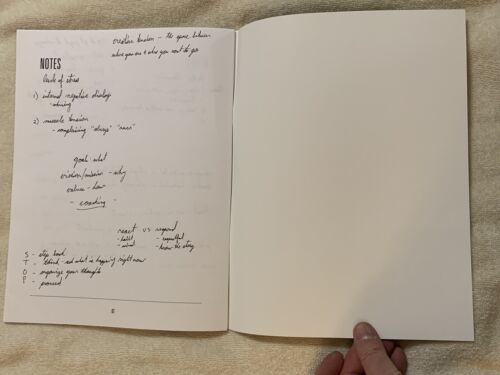 creative tension - the space between
where you are & where you want to go
NOTES
levels of stress
1) internal negative dialog
2) muscle tension
- complaining "always" "never"
goals: what
vision/mission - why
values - how
- coaching -
react vs respond
- habit - respectful
- know the story
S - step back
T - think - ask what is happening right now
O - organize your thoughts
P - proceed